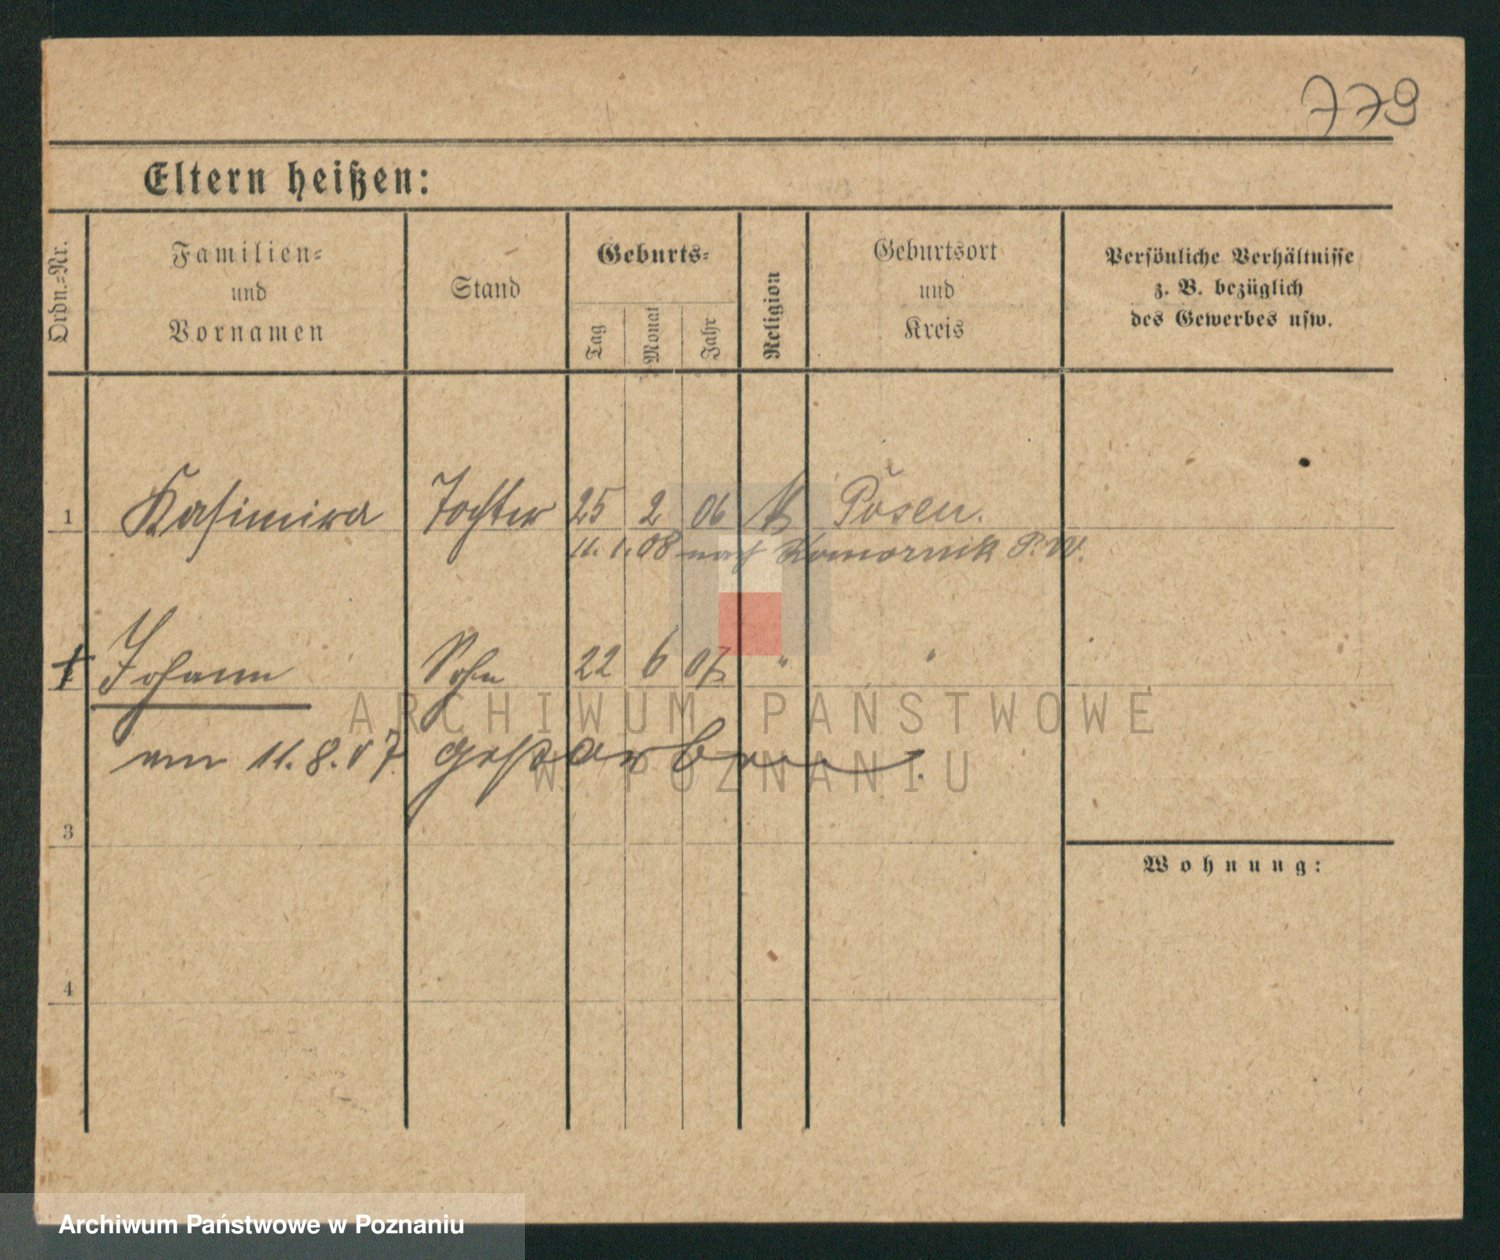 779
Eltern heißen:
Ordn.-Nr.
Familien-
und
Vornamen
Stand
Geburts-
Tag
Monat
Jahr
Religion
Geburtsort
und
Kreis
Persönliche Verhältnisse
z. B. bezüglich
des Gewerbes usw.
1 Kasimira Tochter 25 2 06 K Posen.
11. 1. 08 nach Komornik P. W.
† Johann Sohn 22 6 07 " "
am 11.8.07 gestorben.
3
Wohnung:
4
ARCHIWUM PAŃSTWOWE
W POZNANIU
Archiwum Państwowe w Poznaniu